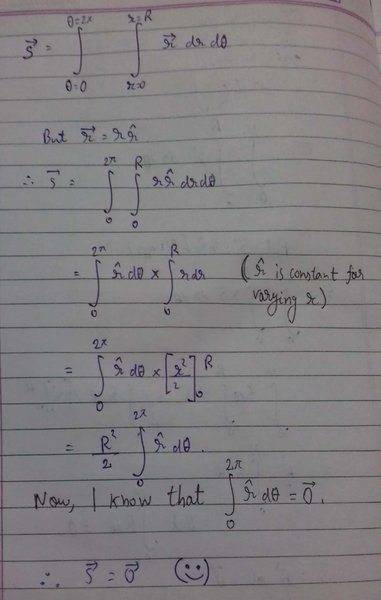 S⃗ = ∫_{θ=0}^{θ=2π} ∫_{r=0}^{r=R} r⃗ dr dθ
But r⃗ = r r̂
∴ S⃗ = ∫_0^{2π} ∫_0^R r r̂ dr dθ
= ∫_0^{2π} r̂ dθ × ∫_0^R r dr (r̂ is constant for varying r)
= ∫_0^{2π} r̂ dθ × [r²/2]_0^R
= R²/2 ∫_0^{2π} r̂ dθ.
Now, I know that ∫_0^{2π} r̂ dθ = 0⃗.
∴ S⃗ = 0⃗ (☺)